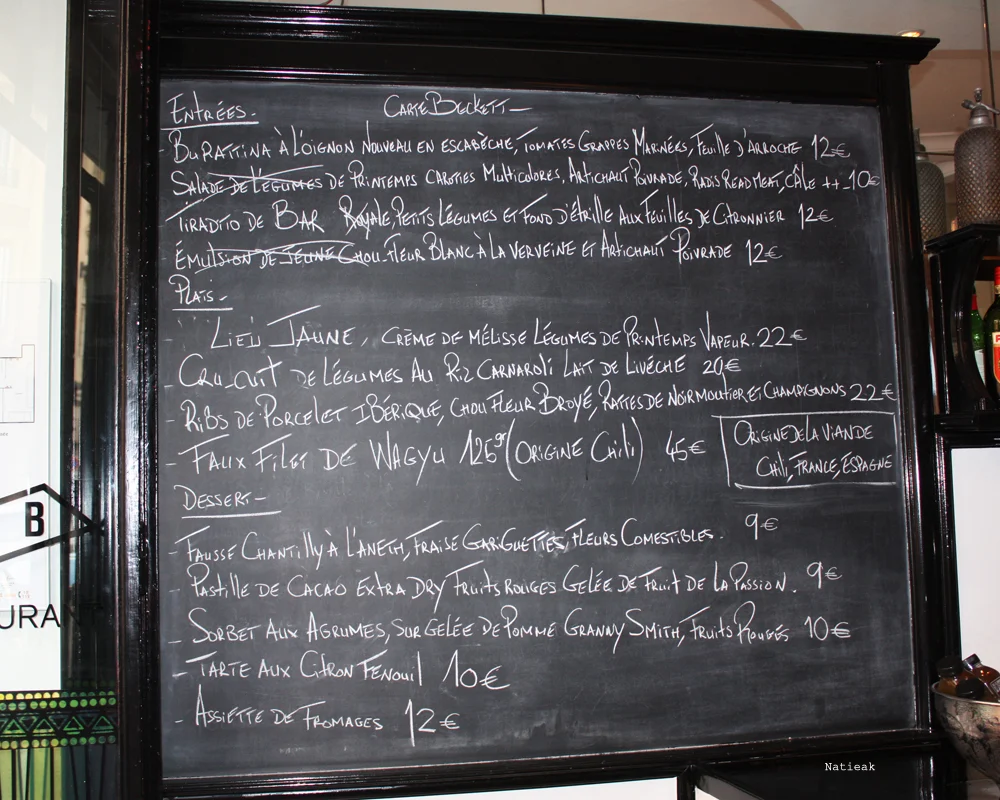 Entrées. Carte Beckett
- Burattina à l'oignon nouveau en escabèche, tomates grappes marinées, feuille d'arroche 12€
Salade de légumes de printemps carottes multicolores, artichaut poivrade, radis read meat, câle ++ 10€
Tiradito de bar royale, petits légumes et fond d'étrille aux feuilles de citronnier 12€
Émulsion de jeune chou fleur blanc à la verveine et artichaut poivrade 12€
Plats.
- Lieu jaune, crème de mélisse légumes de printemps vapeur. 22€
- Cru_cuit de légumes au riz carnaroli lait de livèche 20€
- Ribs de porcelet ibérique, chou fleur broyé, rattes de noirmoutier et champignons 22€
- Faux filet de wagyu 125gr (origine Chili) 45€
Origine de la viande
Chili, France, Espagne
Dessert -
- Fausse chantilly à l'aneth, fraise gariguettes, fleurs comestibles. 9€
- Pastille de cacao extra dry fruits rouges gelée de fruit de la passion. 9€
- Sorbet aux agrumes, sur gelée de pomme granny smith, fruits rouges 10€
- Tarte aux citron fenouil 10€
- Assiette de fromages 12€
B
URA
Natieak